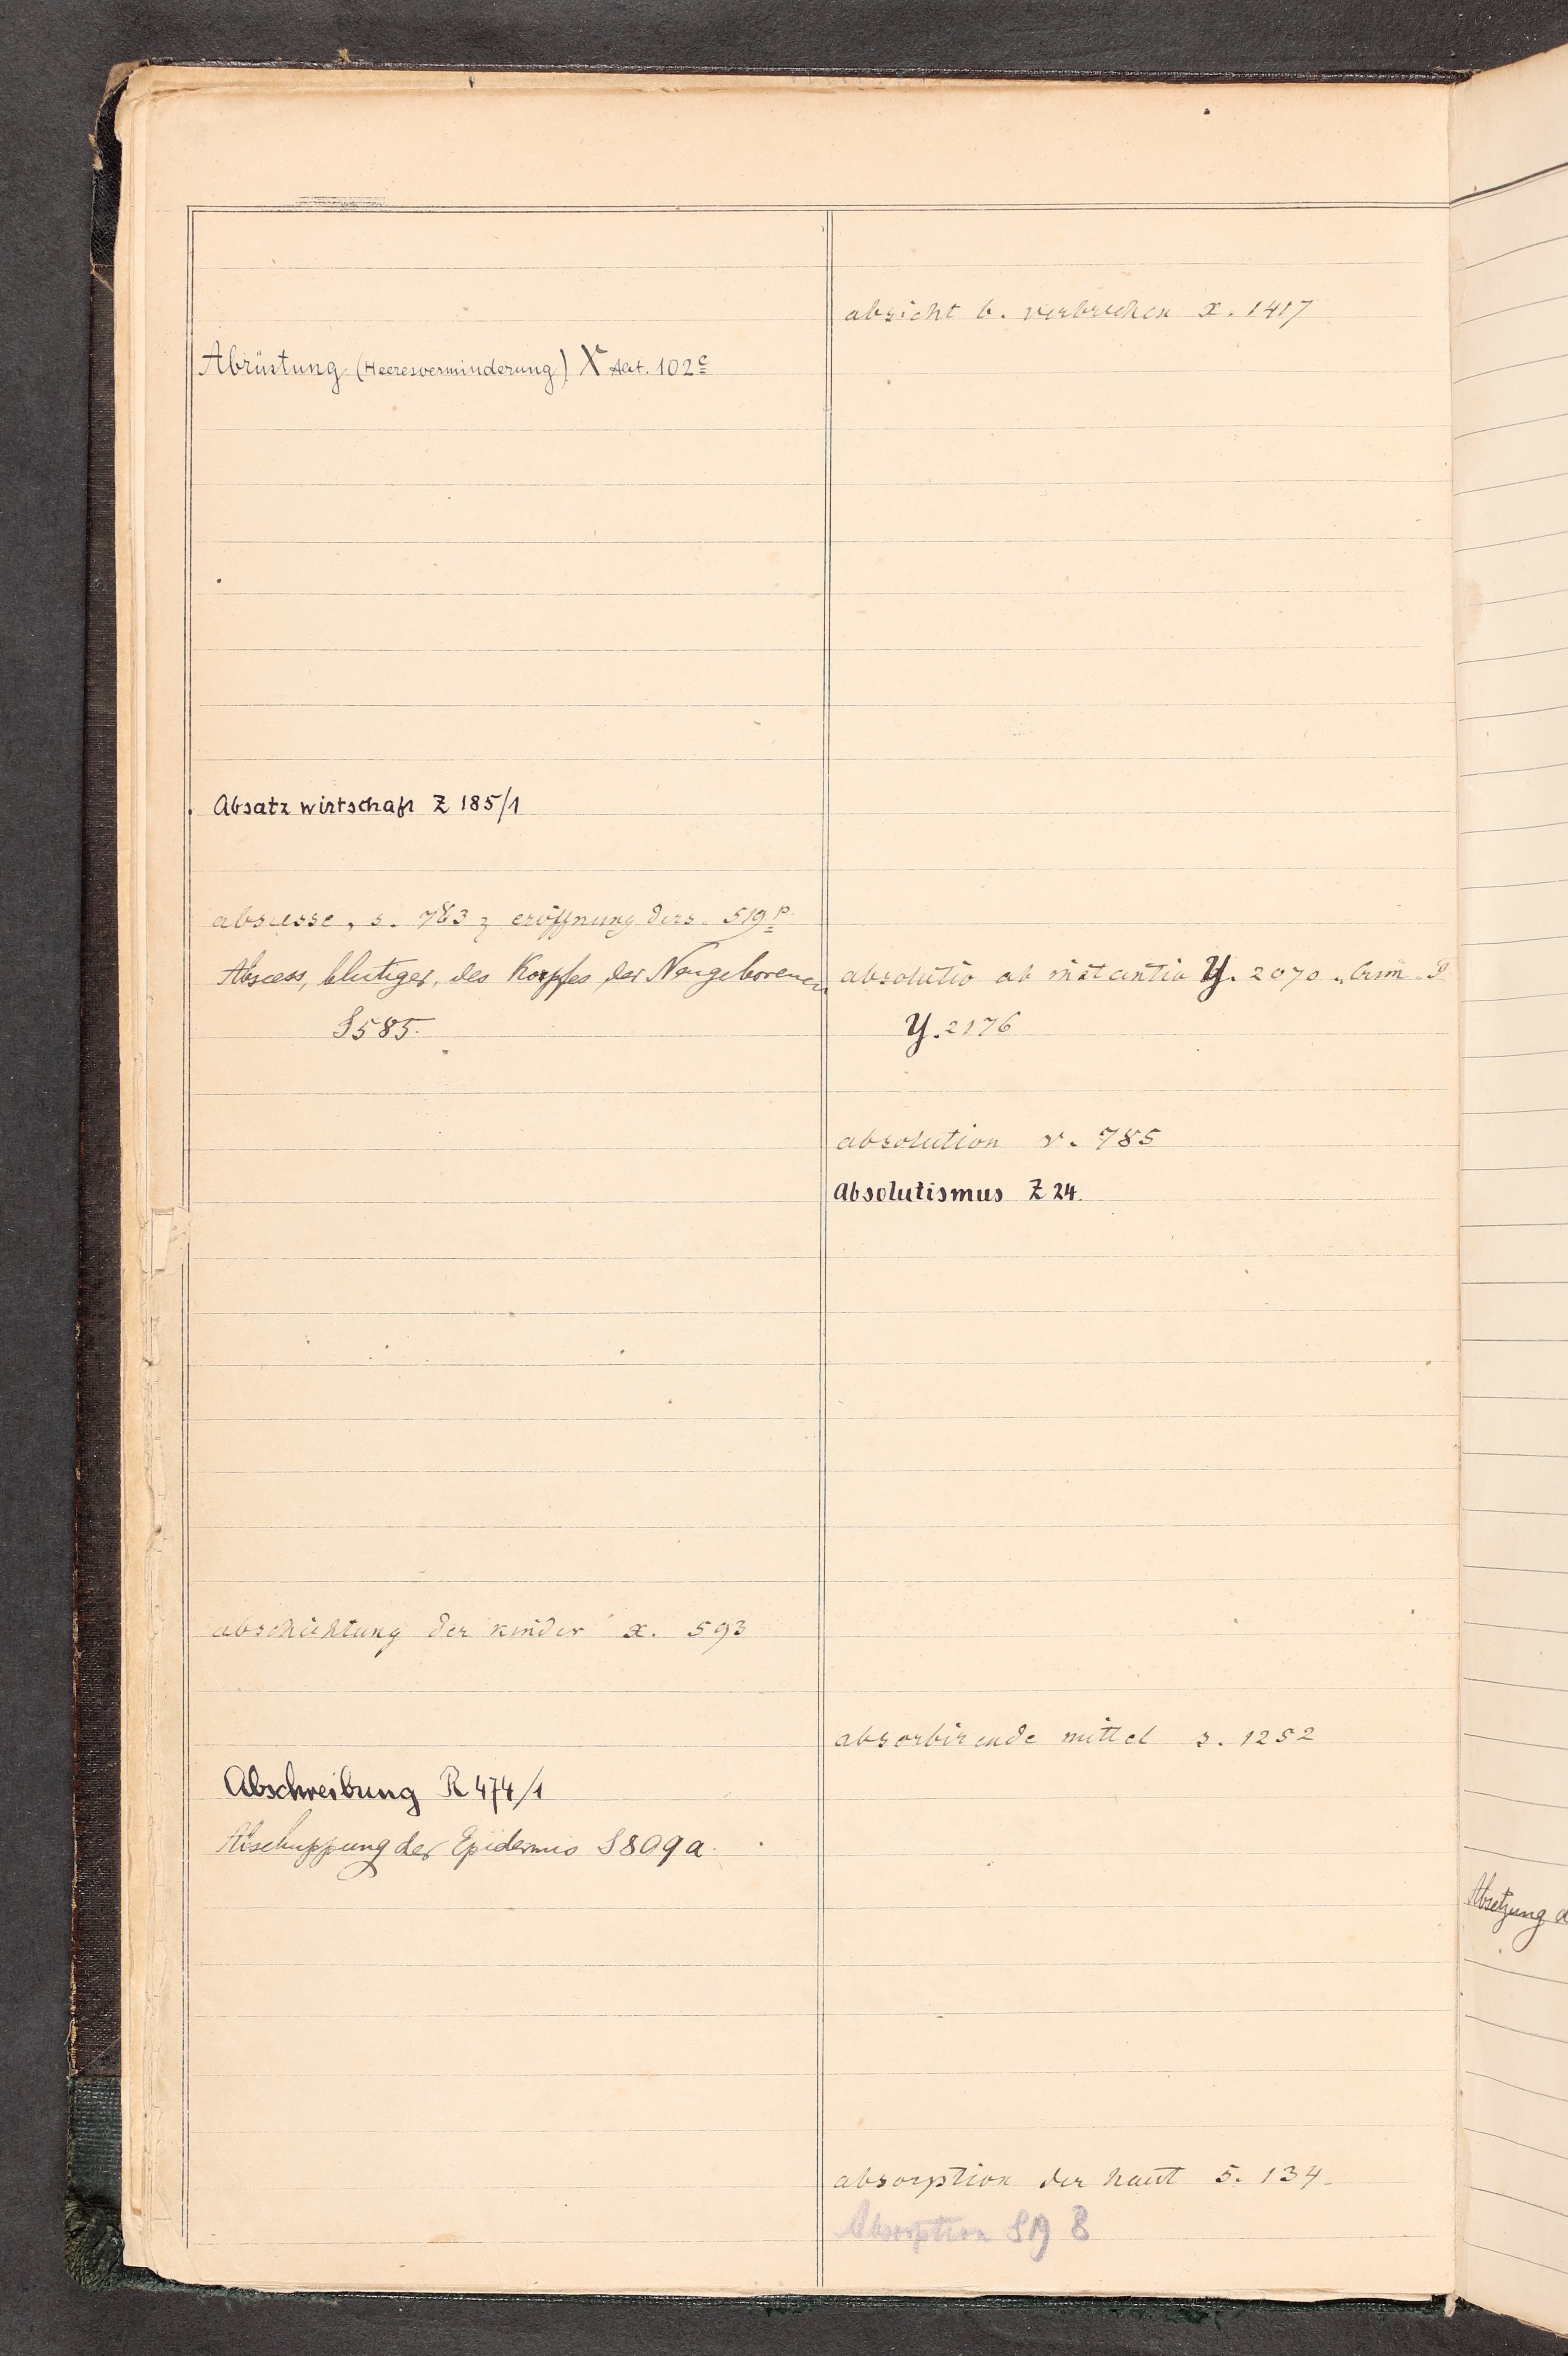 Abrüstung (Heeresverminderung) X Aat. 102c
Absatzwirtschaft Z 185/1
abscesse, s. 783 z eröffnung ders. 519p
Abscess, blutiger, des Kopfes der Neugeborenen
S 585.
abschichtung der kinder x. 593
Abschreibung R 474/1
Abschuppung der Epidermis S 809 a
absicht b. verbrechen x. 1417
absolutio ab instantia Y. 2070
Y. 2176
absolution v. 785
Absolutismus Z 24.
absorbirende mittel s. 1252
absorption der haut s. 134
Absorption S 19
Absetzung d